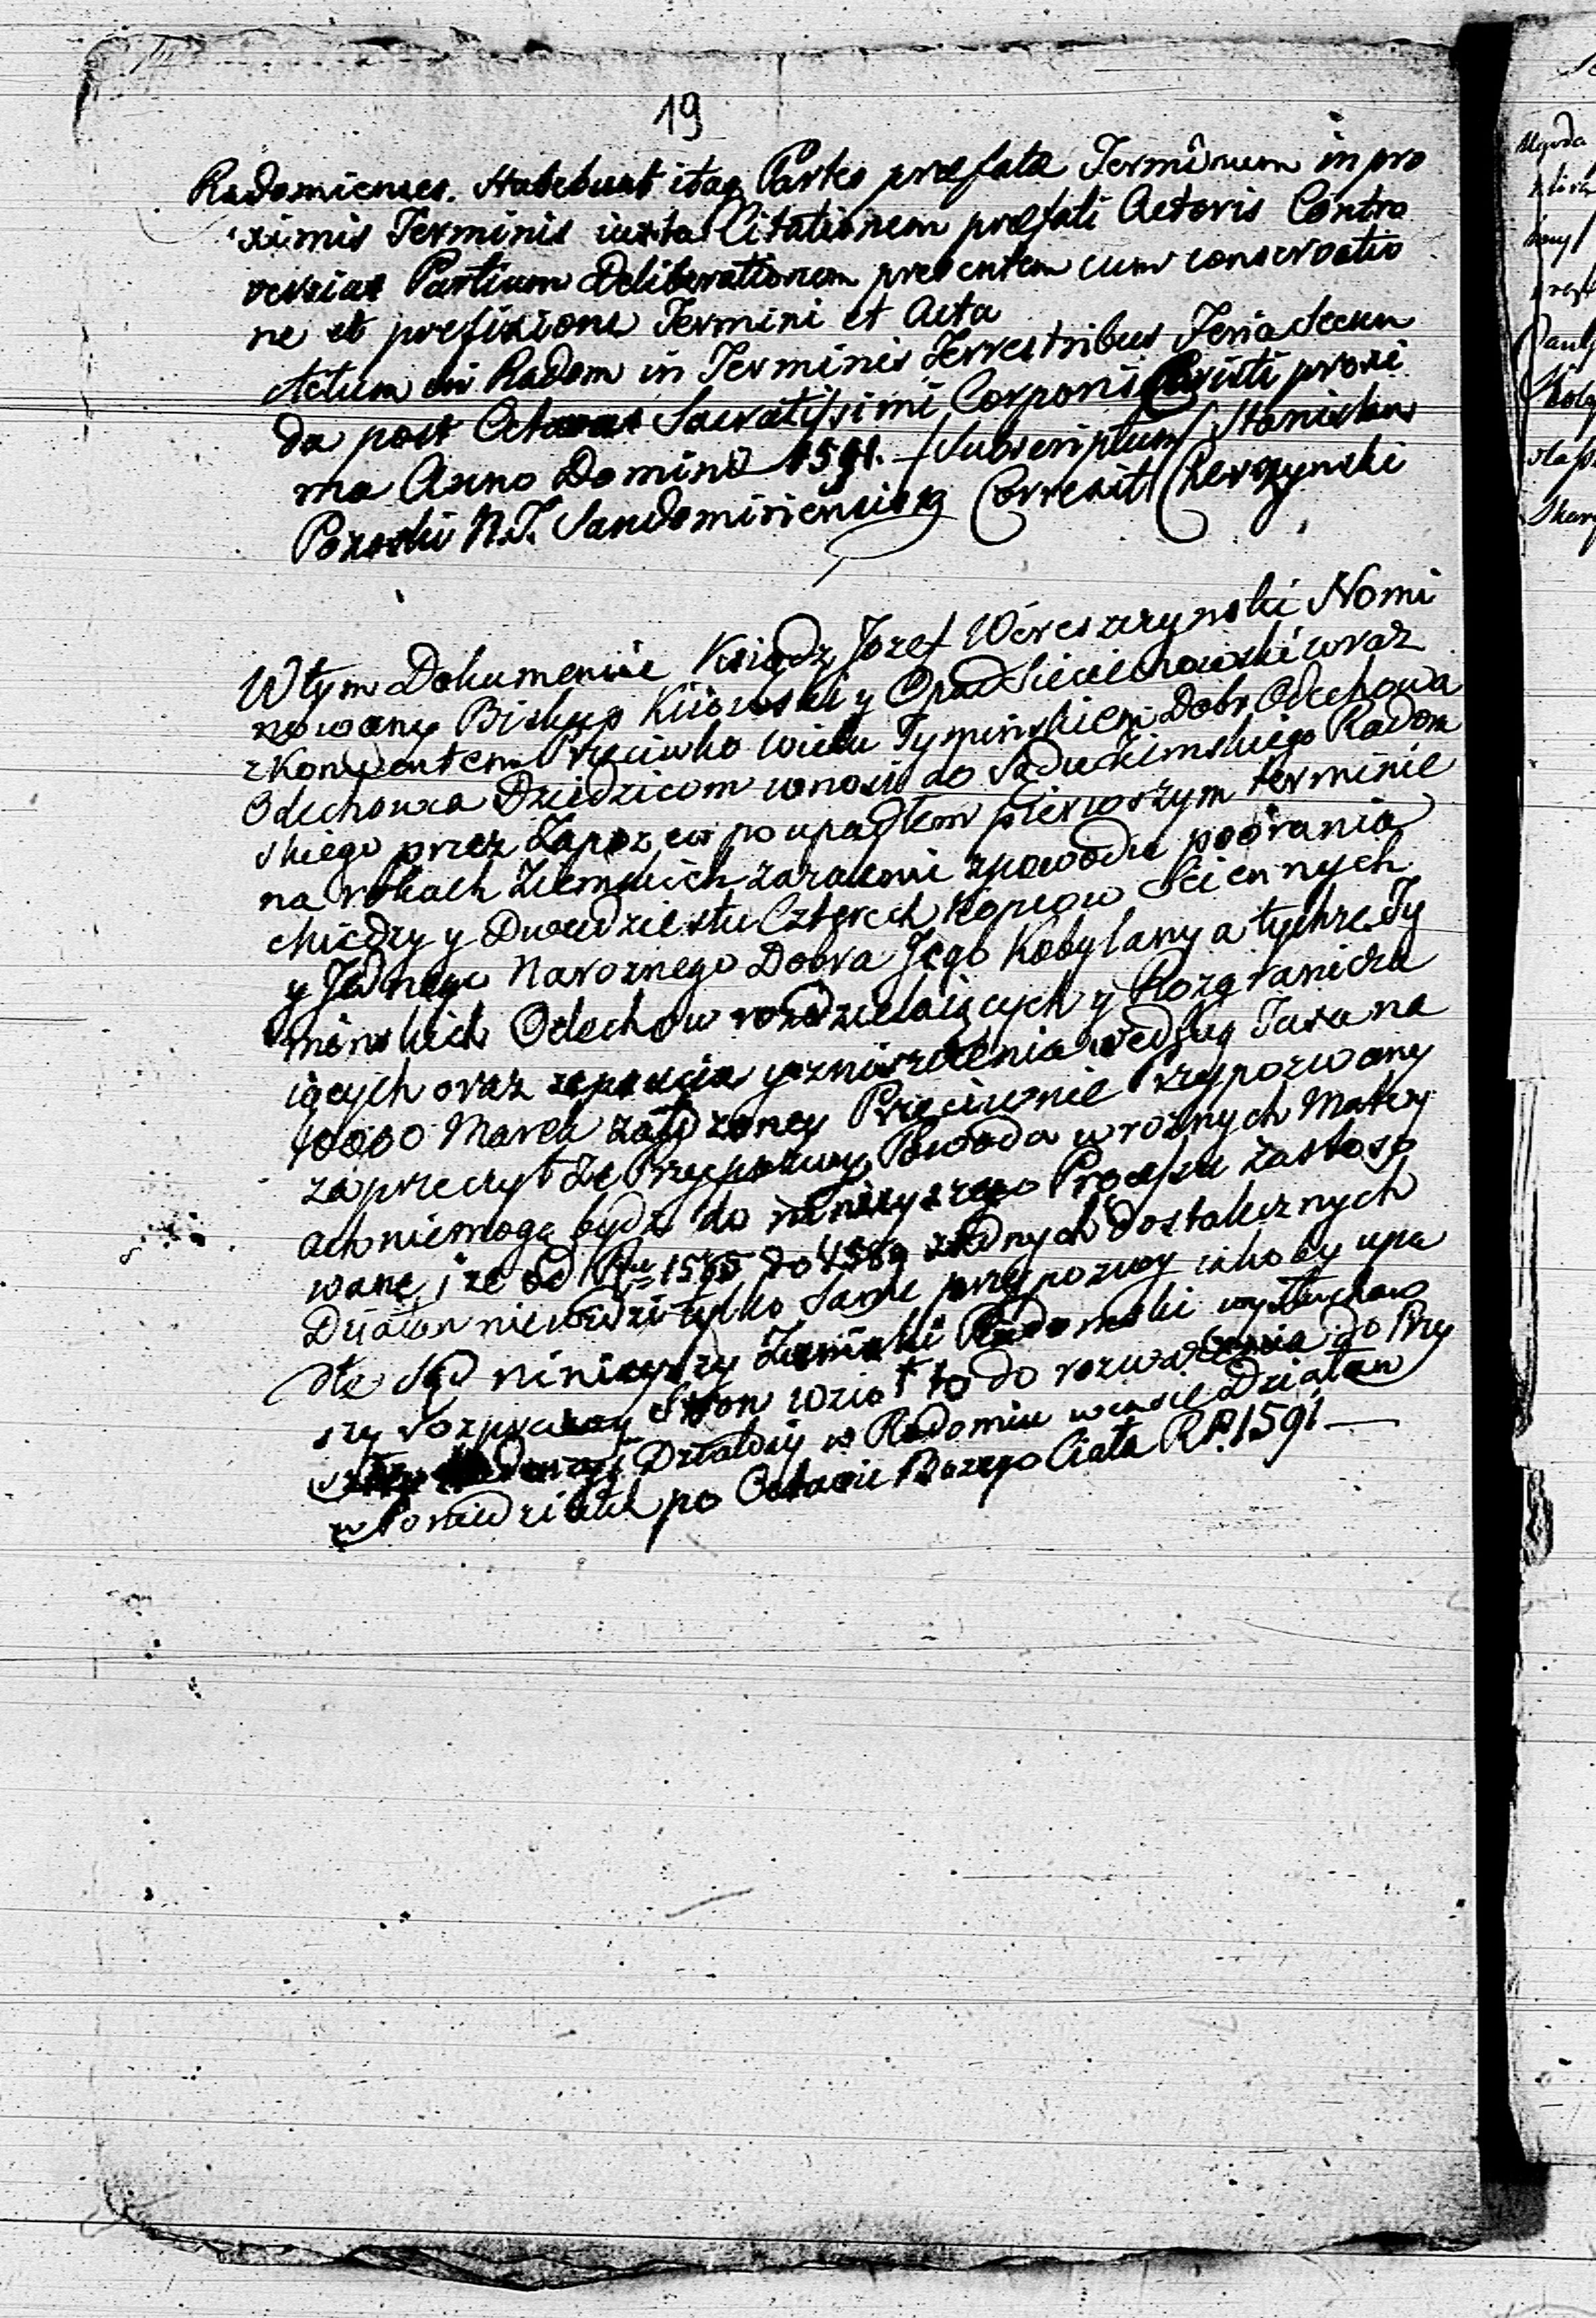 19
Radomienses. Habebunt itaq Partes præfatæ Terminum in pro
ximis Terminis iuxta Citationem præfati Actoris Contro
versias Partium Deliberationem presentem cum conservatio
ne et prefixione Termini et Acta
Actum in Radom in Terminis Terrestribus Feria Secun
da post Octavas Sacratissimi Corporis Christi proxi
ma Anno Domini 1591. Subscriptum Stanislaus
N. T. Sandomiriensis Correxit
W tym Dokumencie Ksiądz Jozef Wereszczynski Nomi
nowany Biskup Kiiowski y Opad Sieciechowski wraz
z Konwentem Przeciwko wielu Tyminskiem Dobr Odechowa
Odechowca Dziedzicom wnosi do Sądu Ziemskiego Radom
skiego przez Zapozew po upadłem pierwszym terminie
na rokach Ziemskich zaraz powodu poorania
Miedzy y Dwudziestu Czterech Kopcow Sciennych
y Jednego Naroznego Dobra Jego Kobylany a tychze Ty
minskich Odechow rozdzielaiących y Rozgranicza
iących oraz zepsucia y zniszczenia według Taxa na
10000 Marek Przeciwnie Przypozwany
zaprzeczył że Przypozwy Powoda w roznych Matery
ach niemogą bydz do ninieyszego Processu zastoso
wane, i że od Ru 1585 do 1589 żadnych dostatecznych
Działan niewidzi tylko same przypozwy iakoby upa
dłe Sąd ninieyszy Ziemski Radomski wysłuchaw
szy rozprawy Stron wziął to do rozważenia do Przy
Działo się w Radomiu w czasie Działan
w Poniedziałek po Octawie Bożego Ciała R.P. 1591